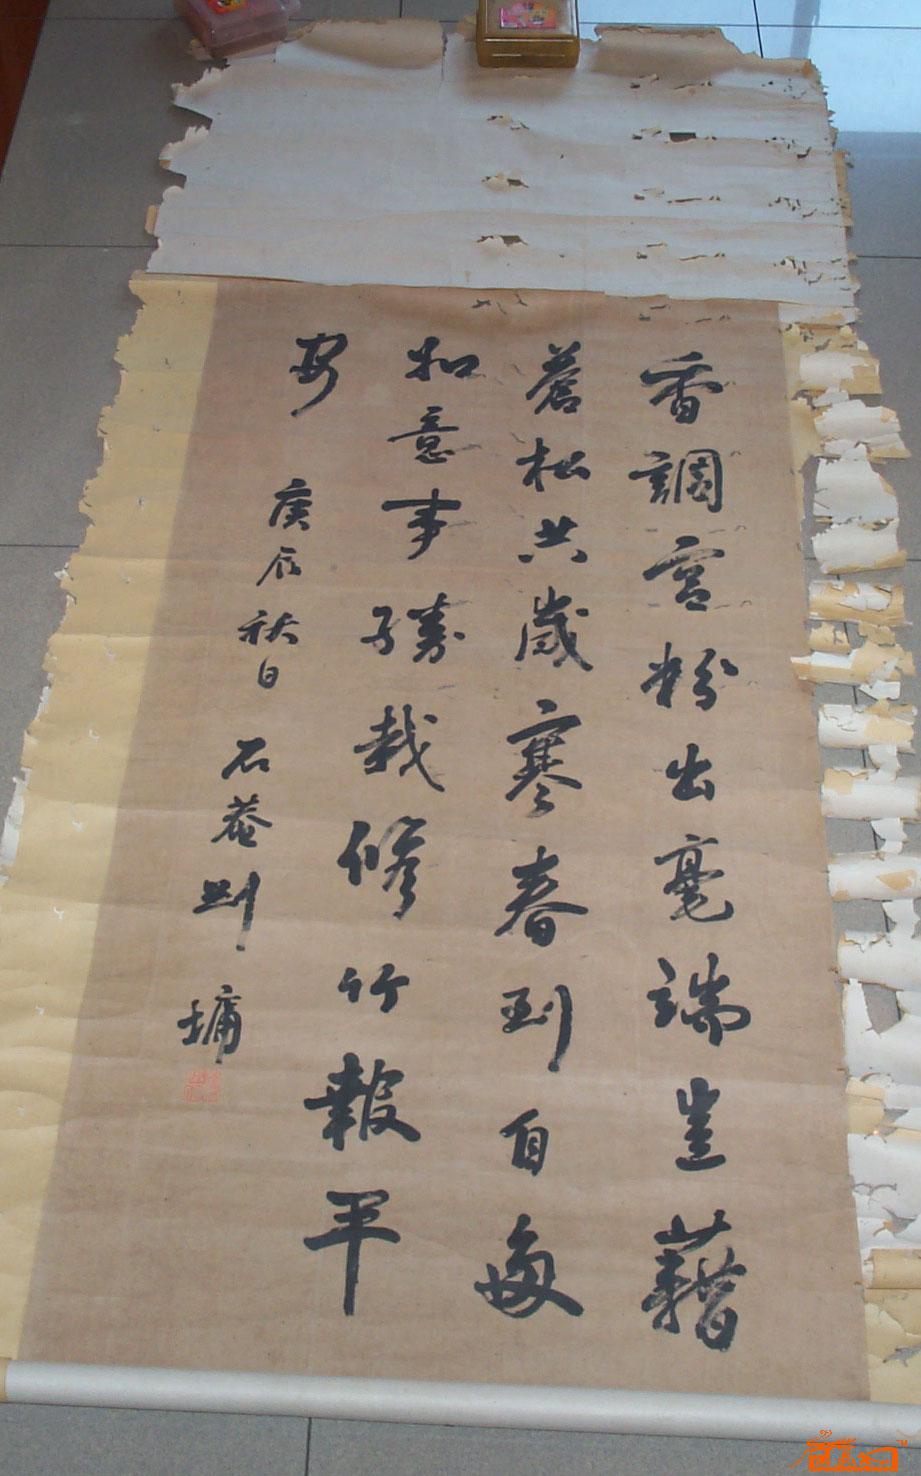 香調宮粉出毫端豈藉
蒼松共歲寒春到自每
和意事勝栽修竹報平
安
庚辰秋日
石菴劉墉